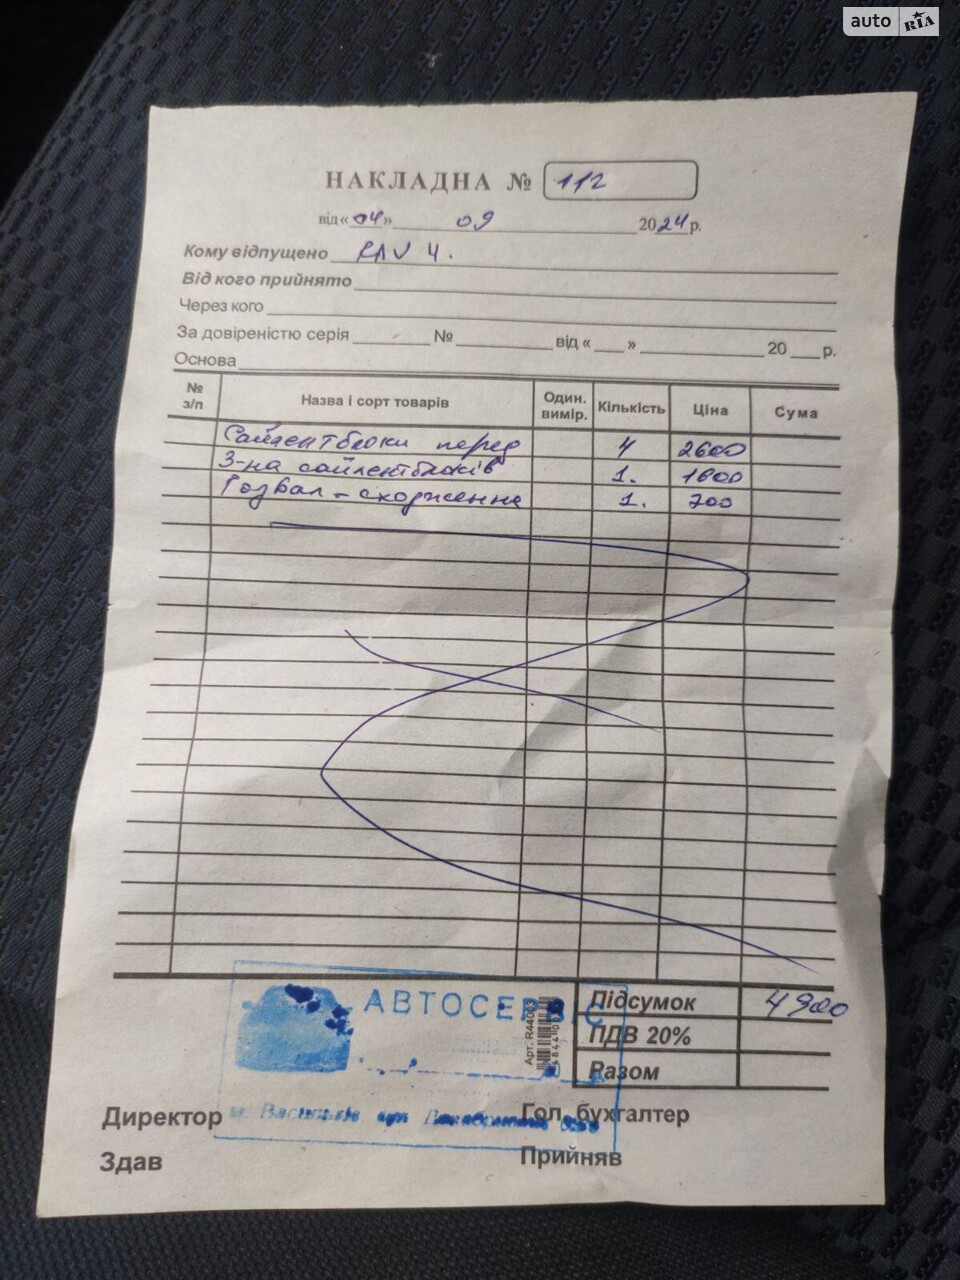 auto RIA
НАКЛАДНА № 112
від «04» 09 2024 р.
Кому відпущено RAV 4.
Від кого прийнято
Через кого
За довіреністю серія № від « » 20 р.
Основа
№ з/п Назва і сорт товарів Один. вимір. Кількість Ціна Сума
Сайлентблоки перед 4 2600
З-на сайлентблоків 1. 1600
Розвал - сходження 1. 700
АВТОСЕРВІС
Підсумок 4900
ПДВ 20%
Разом
Арт. R44003
Директор
м. Васильків вул.
Гол. бухгалтер
Здав
Прийняв